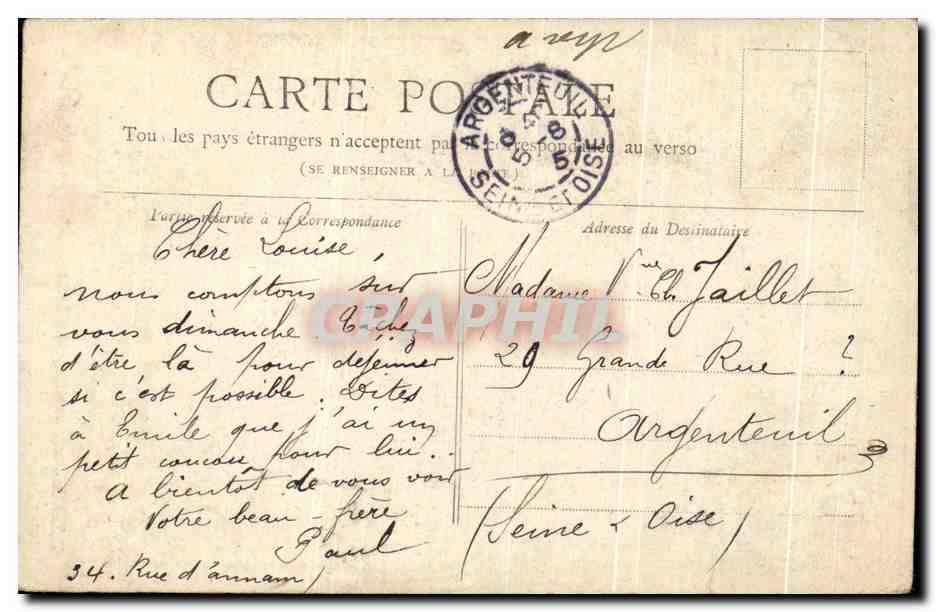 CARTE POSTALE
Tous les pays étrangers n'acceptent pas la correspondance au verso
(SE RENSEIGNER A LA POSTE)
ARGENTEUIL
SEINE-ET-OISE
Partie réservée à la Correspondance
Chère Louise
nous comptons sur
vous dimanche Tâchez
d'être là pour déjeuner
si c'est possible. Dites
à Emile que j'ai un
petit coucou pour lui..
A bientôt de vous voir
Votre beau-frère
Paul
34. Rue d'annam
Adresse du Destinataire
Madame Vve Ch Jaillet
29 Grande Rue ?
Argenteuil
(Seine & Oise)
CPAPHIL